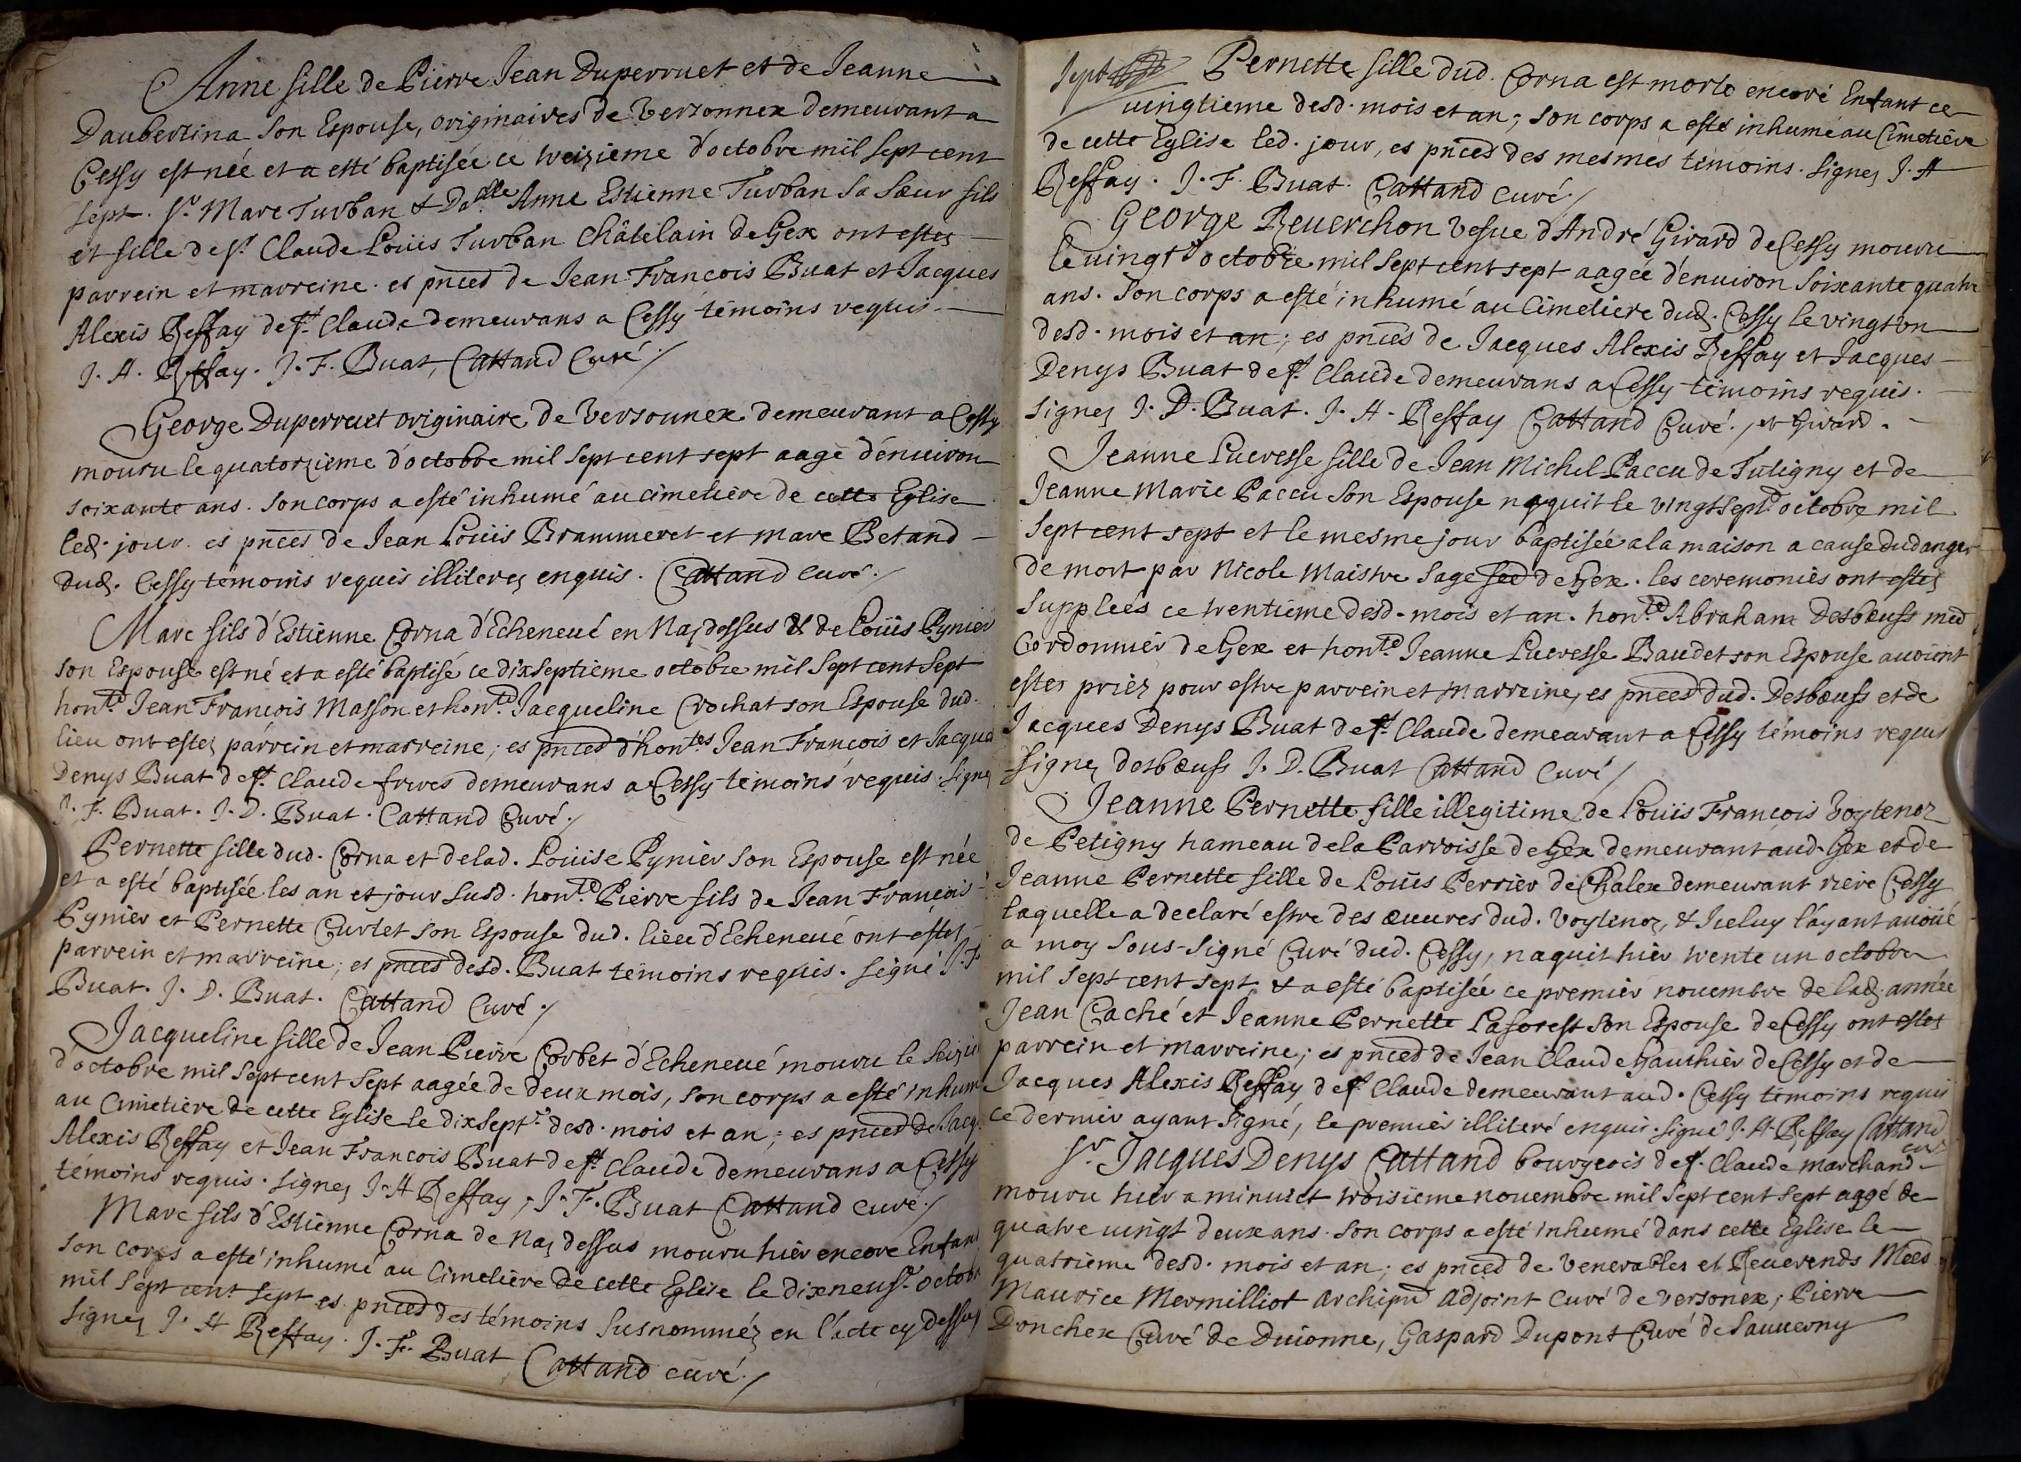 Anne fille de Pierre Jean Duperruet et de Jeanne
Daubertina son Espouse, originaires de Versonnex demeurant a
Cessy est née et a esté baptisée ce treizieme d'octobre mil sept cent
sept. Sr. Marc Turban & Dalle Anne Estienne Turban sa sœur fils
et fille de Sr. Claude Loüis Turban Châtelain de Gex ont estez
parrein et marreine. es pnces de Jean François Buat et Jacques
Alexis Reffay de ft. Claude demeurans a Cessy témoins requis.
J. A. Reffay. J. F. Buat, Cattand Curé./
George Duperruet originaire de Versounex demeurant a Cessy
mouru le quatorzieme d'octobre mil sept cent sept aagé d'enuiron
soixante ans. son corps a esté inhumé au cimetière de cette Eglise
led. jour. es pnces de Jean Loüis Brammeret et Marc Betand
dud. Cessy témoins requis illiterez enquis. Cattand curé./
Marc fils d'Estienne Corna d'Echeneué en Naz dessus & de Loüis Pynier
son Espouse est né et a esté baptisé ce dixseptieme octobre mil sept cent sept
honte. Jean François Masson et honte. Jacqueline Crochat son Espouse dud.
lieu ont estez parrein et marreine; es pnces d'hontes Jean François et Jacques
Denys Buat de ft. Claude freres demeurans a Cessy témoins requis. signez
J. F. Buat. J. D. Buat. Cattand Curé./
Pernette fille dud. Corna et de lad. Loüise Pynier son Espouse est née
et a esté baptisée les an et jour susd. honte. Pierre fils de Jean François
Pynier et Pernette Curtet son Espouse dud. lieu d'Echeneué ont estez
parrein et marreine; es pnces desd. Buat témoins requis. signé J. F.
Buat. J. D. Buat. Cattand Curé./
Jacqueline fille de Jean Pierre Corbet d'Echeneué mouru le seizie
d'octobre mil sept cent sept aagée de deux mois, son corps a esté inhum
au Cimetière de cette Eglise le dixsept.e desd. mois et an; es pnces de Jacq.
Alexis Reffay et Jean François Buat de ft. Claude demeurans a Cessy
témoins requis. signez J. A Reffay, J. F. Buat Cattand curé./
Marc fils d'Estienne Corna de Naz dessus mouru hier encore Enfant
son corps a esté inhumé au Cimetière de cette Eglise le dixneuf.e octobr
mil sept cent sept es pnces des témoins susnommez en l'acte cy dessus
signez J. A Reffay. J. F. Buat Cattand curé./
Pernette fille dud. Corna est morte encoré Enfant ce
vingtieme desd. mois et an; son corps a esté inhumé au Cimetière
de cette Eglise led. jour, es pnces des mesmes témoins. signez J. A
Reffay. J. F. Buat. Cattand curé./
George Reuerchon vefue d'André Girard de Cessy mouru
le vingt.e octobre mil sept cent sept aagée d'enuiron soixante quatre
ans. son corps a esté inhumé au Cimetière dud. Cessy le vingt un
desd. mois et an; es pnces de Jacques Alexis Reffay et Jacques
Denys Buat de ft. Claude demeurans a Cessy témoins requis.
signez J. D. Buat. J. A. Reffay Cattand Curé./ et Girard.
Jeanne Lucresse fille de Jean Michel Paccu de Tutigny et de
Jeanne Marie Paccu son Espouse naquit le vingtsept.e octobre mil
sept cent sept et le mesme jour baptisée a la maison a cause du danger
de mort par Nicole Maistre sage fee de Gex. les ceremonies ont estez
suppleés ce trentieme desd. mois et an. honte. Abraham Desbœufs
Cordonnier de Gex et honte. Jeanne Lucresse Baudet son Espouse auoient
estez priez pour estre parrein et marreine, es pnces dud. Desbœufs et de
Jacques Denys Buat de ft. Claude demeurant a Cessy témoins requis
signez desbœufs J. D. Buat Cattand curé/
Jeanne Pernette fille illegitime de Loüis François Voytenoz
de Petigny hameau de la Parroisse de Gex demeurant aud. Gex et de
Jeanne Pernette fille de Loüis Perrier de Chalex demeurant riere Cessy
laquelle a declaré estre des œuures dud. Voytenoz, & Iceluy l'ayant auoüé
a moy sous-signé Curé dud. Cessy, naquit hier trente un octobre
mil sept cent sept & a esté baptisée ce premier nouembre de lad. année
Jean Caché et Jeanne Pernette Laforest son Espouse de Cessy ont estez
parrein et marreine; es pnces de Jean Claude Gauthier de Cessy et de
Jacques Alexis Reffay de ft. Claude demeurant aud. Cessy témoins requis
ce dernier ayant signé, le premier illiteré enquis. signé J. A. Reffay Cattand
curé
Sr. Jacques Denys Cattand bourgeois de ft. Claude marchand
mouru hier a minuict troisieme nouembre mil sept cent sept aagé de
quatre uingt deux ans. son corps a esté inhumé dans cette Eglise le
quatrieme desd. mois et an; es pnces de Venerables et Reuerends
Maurice Mermilliot Adjoint Curé de Versonex, Pierre
Donchex Curé de Diuonne, Gaspard Dupont Curé de Sauuerny